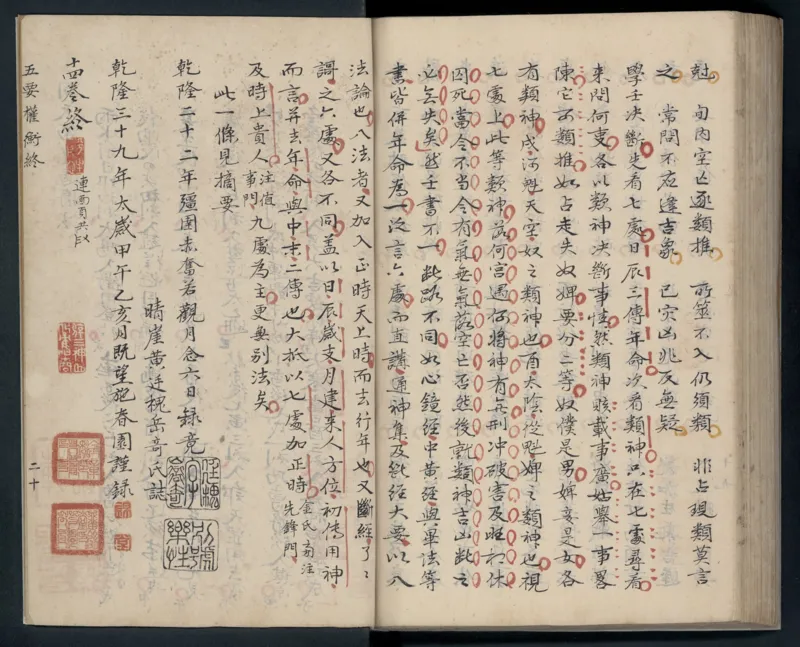 尅 旬內空亡逐類推 所筮不入仍須類 非占現類莫言
之 常問不应逢吉象 已灾凶兆反無疑
學壬決斷先看七處日辰三傳年命次看類神只在七處尋看
來問何事各以類神決斷事情然類神賅載事廣姑舉一事畧
陳它可類推如占走失奴婢要分二等奴僕是男婢妾是女各
有類神戌河魁天空奴之類神也酉太陰從魁婢之類神也視
七處上此等類神落何宮遇何將神有無刑冲破害及旺相休
囚死當令不当令有氣無氣落空亡否然後就類神吉凶斷之
必無失矣然壬書不一此路不同如心鏡經中黃經與畢法等
書皆併年命為一泛言六處而直講通神集及断經大要以八
法論也八法者又加入正時天上時而去行年也又斷經了了
謌之六處又各不同蓋以日辰歲支月建來人方位初傳用神
而言并去年命與中末二傳也大抵以七處加正時金氏斋注先鋒門
及時上貴人注值事門九處為主更無別法矣
此一條見摘要
乾隆二十二年彊圉赤奮若觀月念六日録竟
晴崖黃廷槐岳奇氏誌
乾隆三十九年太歲甲午乙亥月既望施春園謹録
十四卷終
連面頁共
五要權衡終
二十